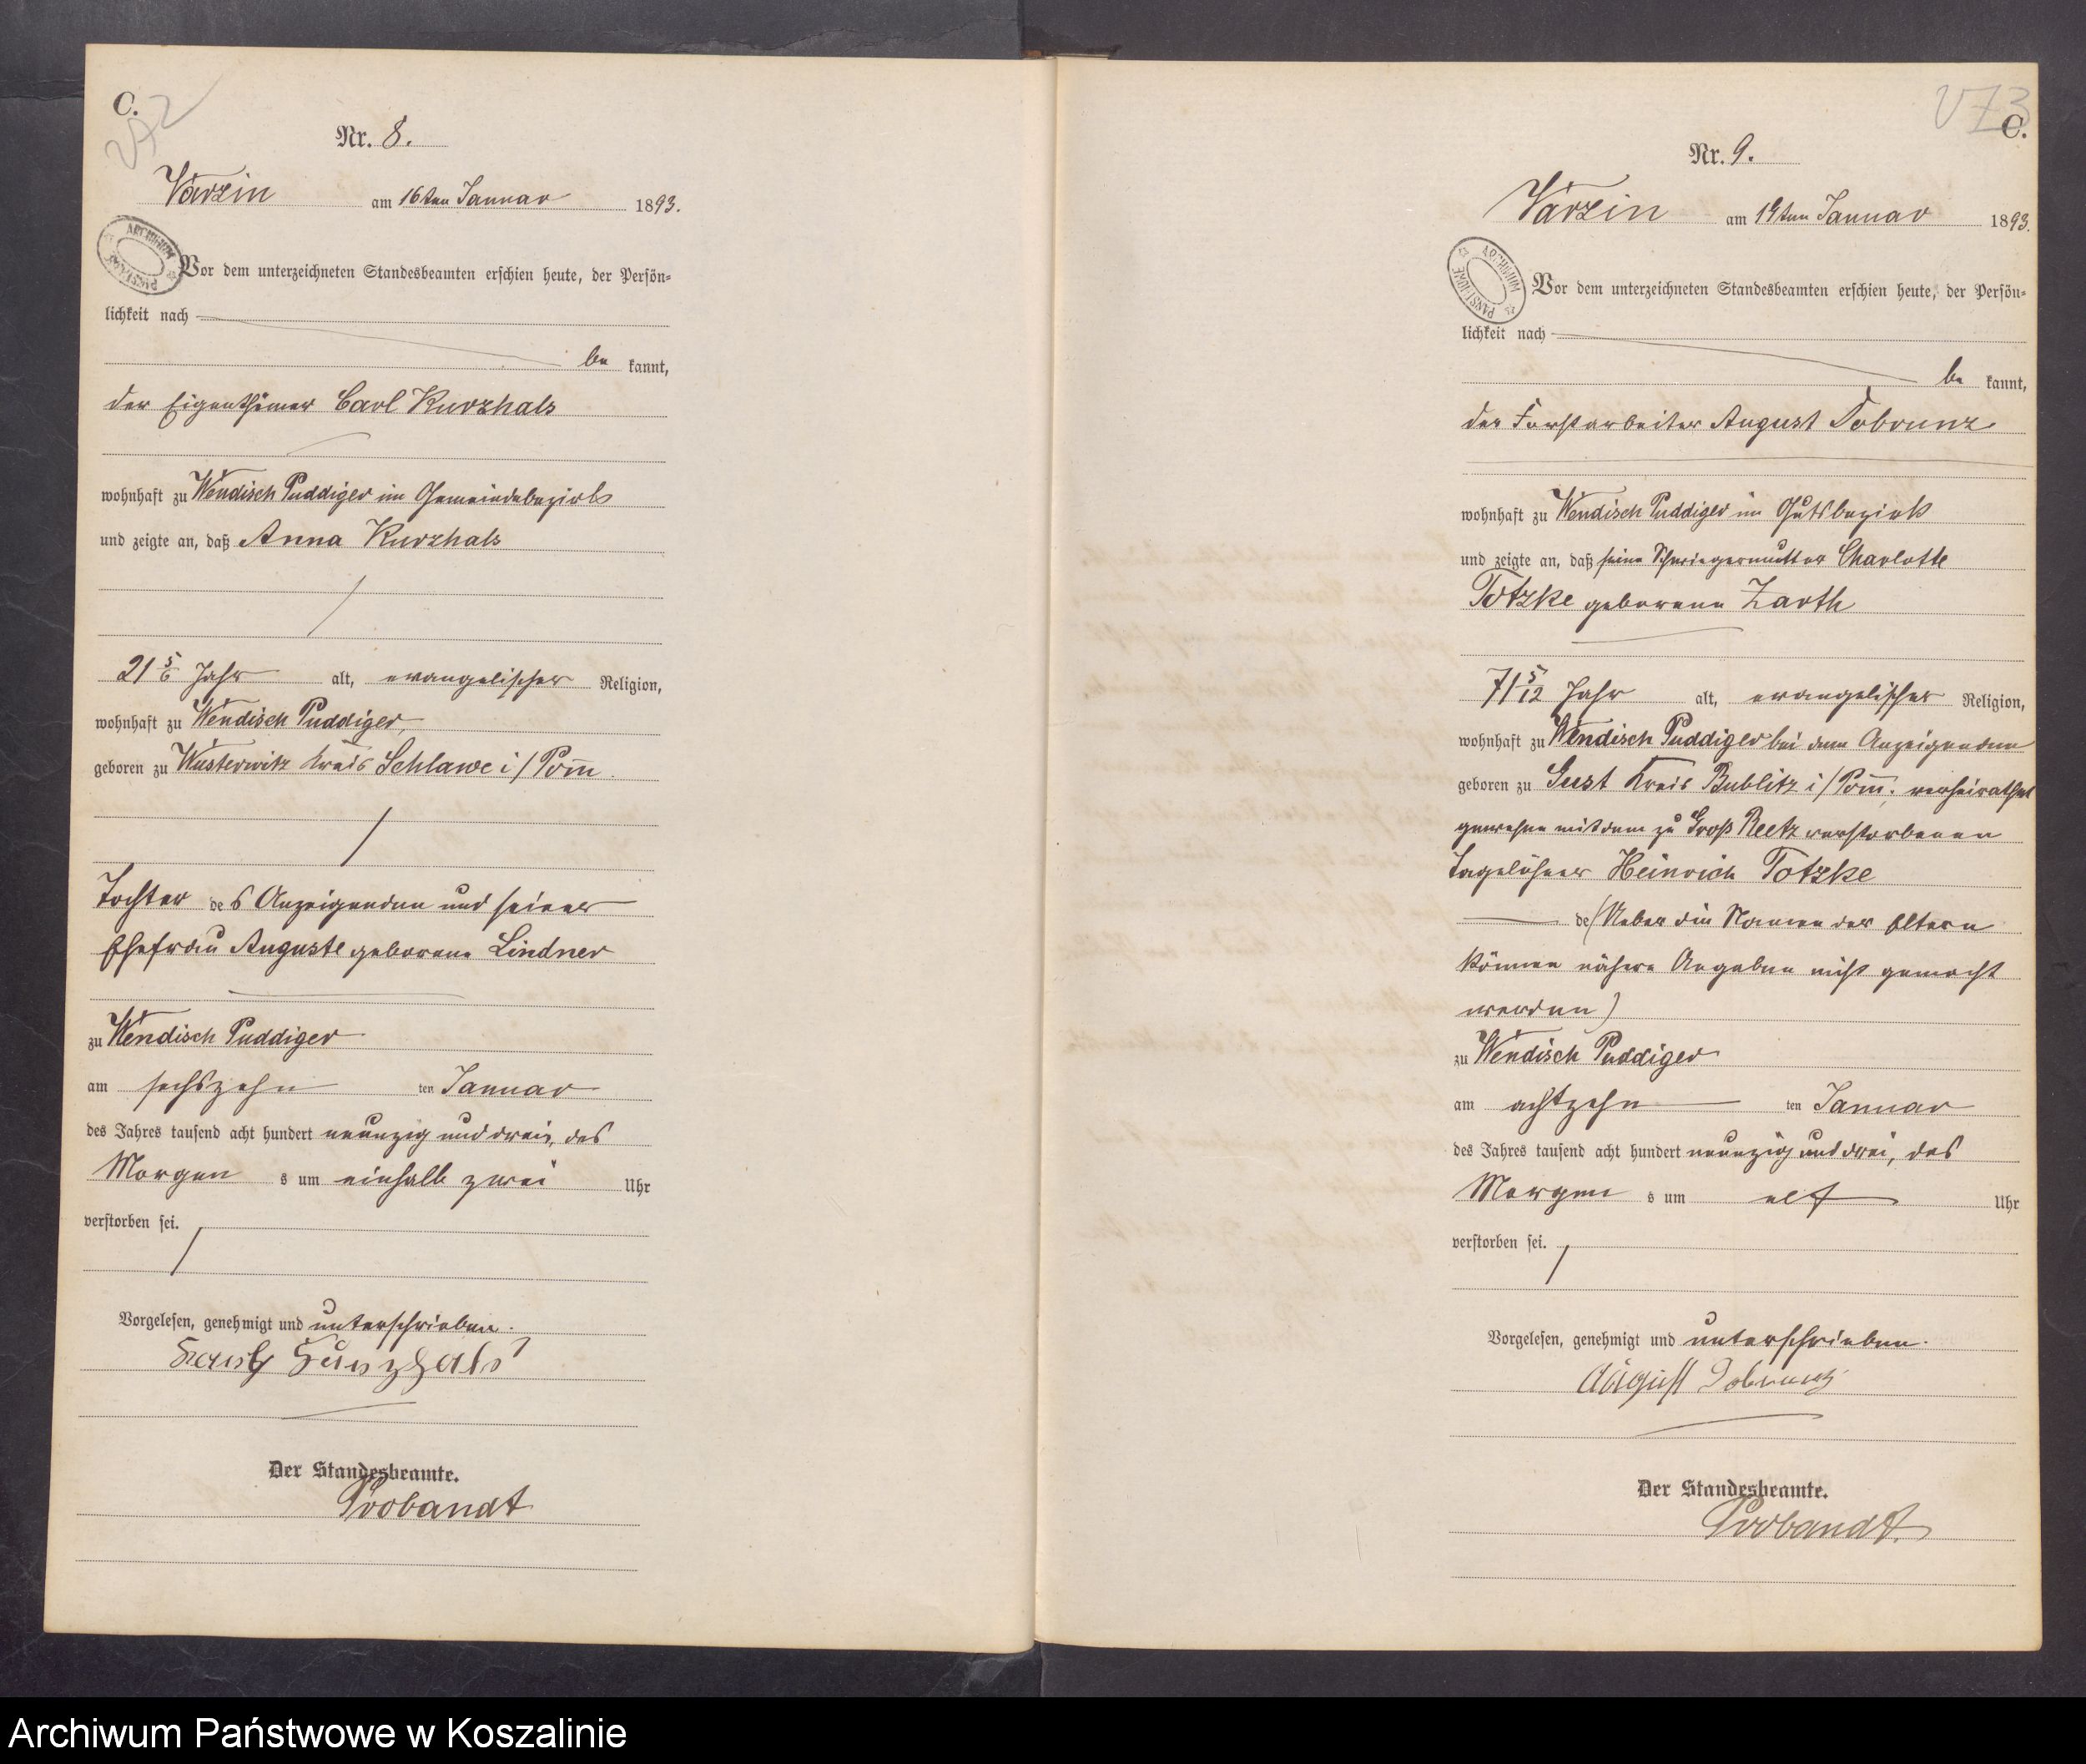 C.
V72
Nr. 8.
Varzin am 16ten Januar 1893.
ARCHIWUM PAŃSTWOWE
Vor dem unterzeichneten Standesbeamten erschien heute, der Persön-
lichkeit nach
be kannt,
der Eigenthümer Carl Kurzhals
wohnhaft zu Wendisch Puddiger im Gemeindebezirk
und zeigte an, daß Anna Kurzhals
21 5/6 Jahr alt, evangelischer Religion,
wohnhaft zu Wendisch Puddiger,
geboren zu Wusterwitz Kreis Schlawe i/Pom̅.
Tochter des Anzeigenden und seiner
Ehefrau Auguste geborene Lindner
zu Wendisch Puddiger
am sechszehn ten Januar
des Jahres tausend acht hundert neunzig und drei, des
Morgen s um einhalb zwei Uhr
verstorben sei.
Vorgelesen, genehmigt und unterschrieben.
Kurzhals
Der Standesbeamte.
Probandt
V73
C.
Nr. 9.
Varzin am 19ten Januar 1893.
ARCHIWUM PAŃSTWOWE
Vor dem unterzeichneten Standesbeamten erschien heute, der Persön-
lichkeit nach
be kannt,
der Forstarbeiter August Dobrunz
wohnhaft zu Wendisch Puddiger im Gutsbezirk
und zeigte an, daß seine Schwiegermutter Charlotte
Totzke geborene Zarth
71 5/12 Jahr alt, evangelischer Religion,
wohnhaft zu Wendisch Puddiger bei dem Anzeigenden
geboren zu Gust Kreis Bublitz i/Pom̅. verheirathet
gewesen mit dem zu Groß Reetz verstorbenen
Tagelöhner Heinrich Totzke
de (Ueber die Namen der Eltern
können nähere Angaben nicht gemacht
werden)
zu Wendisch Puddiger
am achtzehn ten Januar
des Jahres tausend acht hundert neunzig und drei, des
Morgen s um elf Uhr
verstorben sei.
Vorgelesen, genehmigt und unterschrieben.
August Dobrunz
Der Standesbeamte.
Probandt.
Archiwum Państwowe w Koszalinie